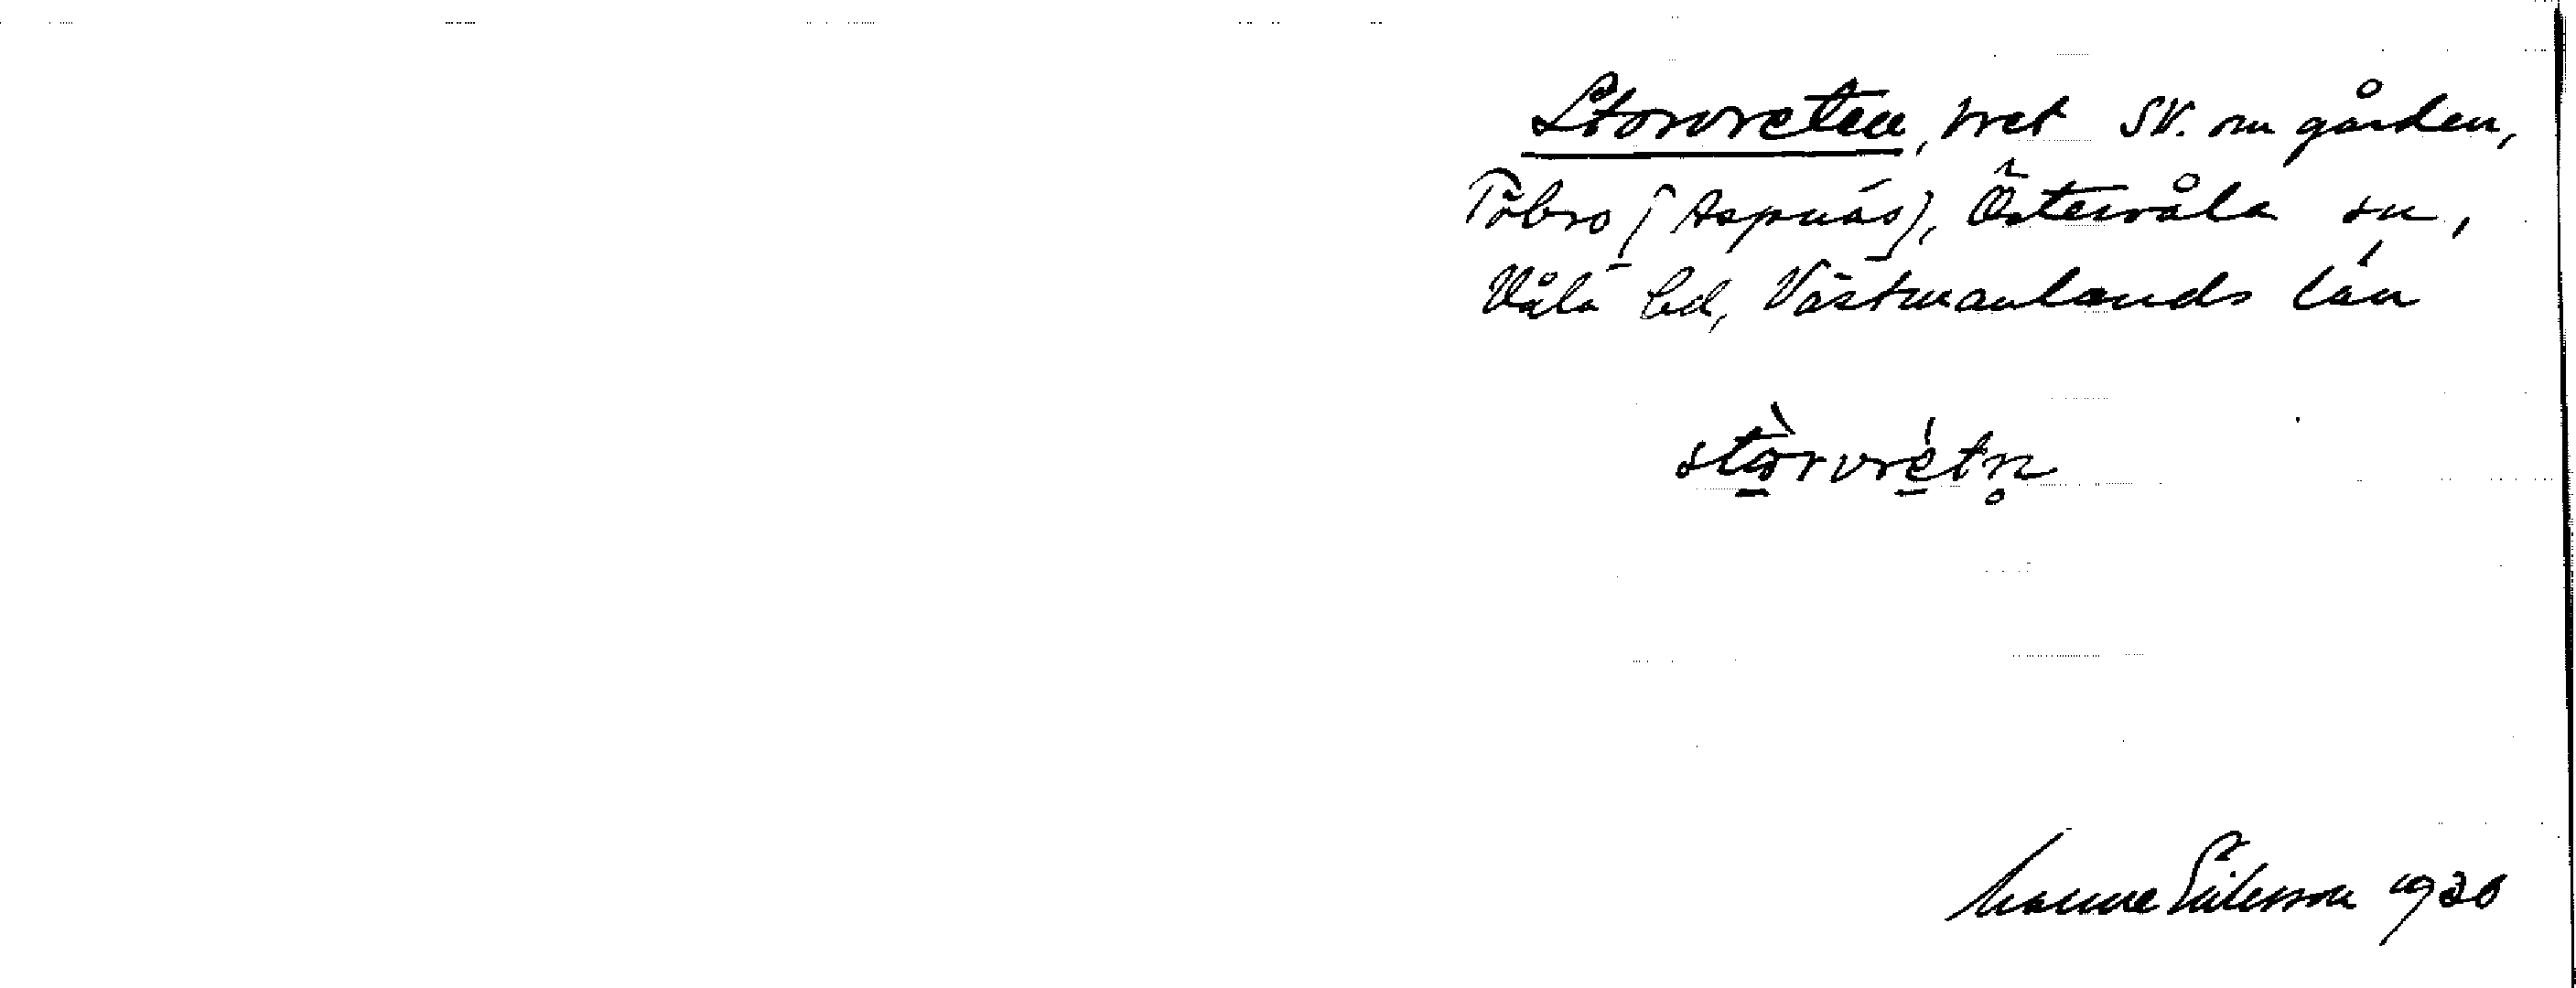 Storvreten, vret SV. om gården,
Töbro [Aspnäs], Östervåla sn,
Våla hd, Västmanlands län
stòrvrétn̥
Manne Eriksson 1930